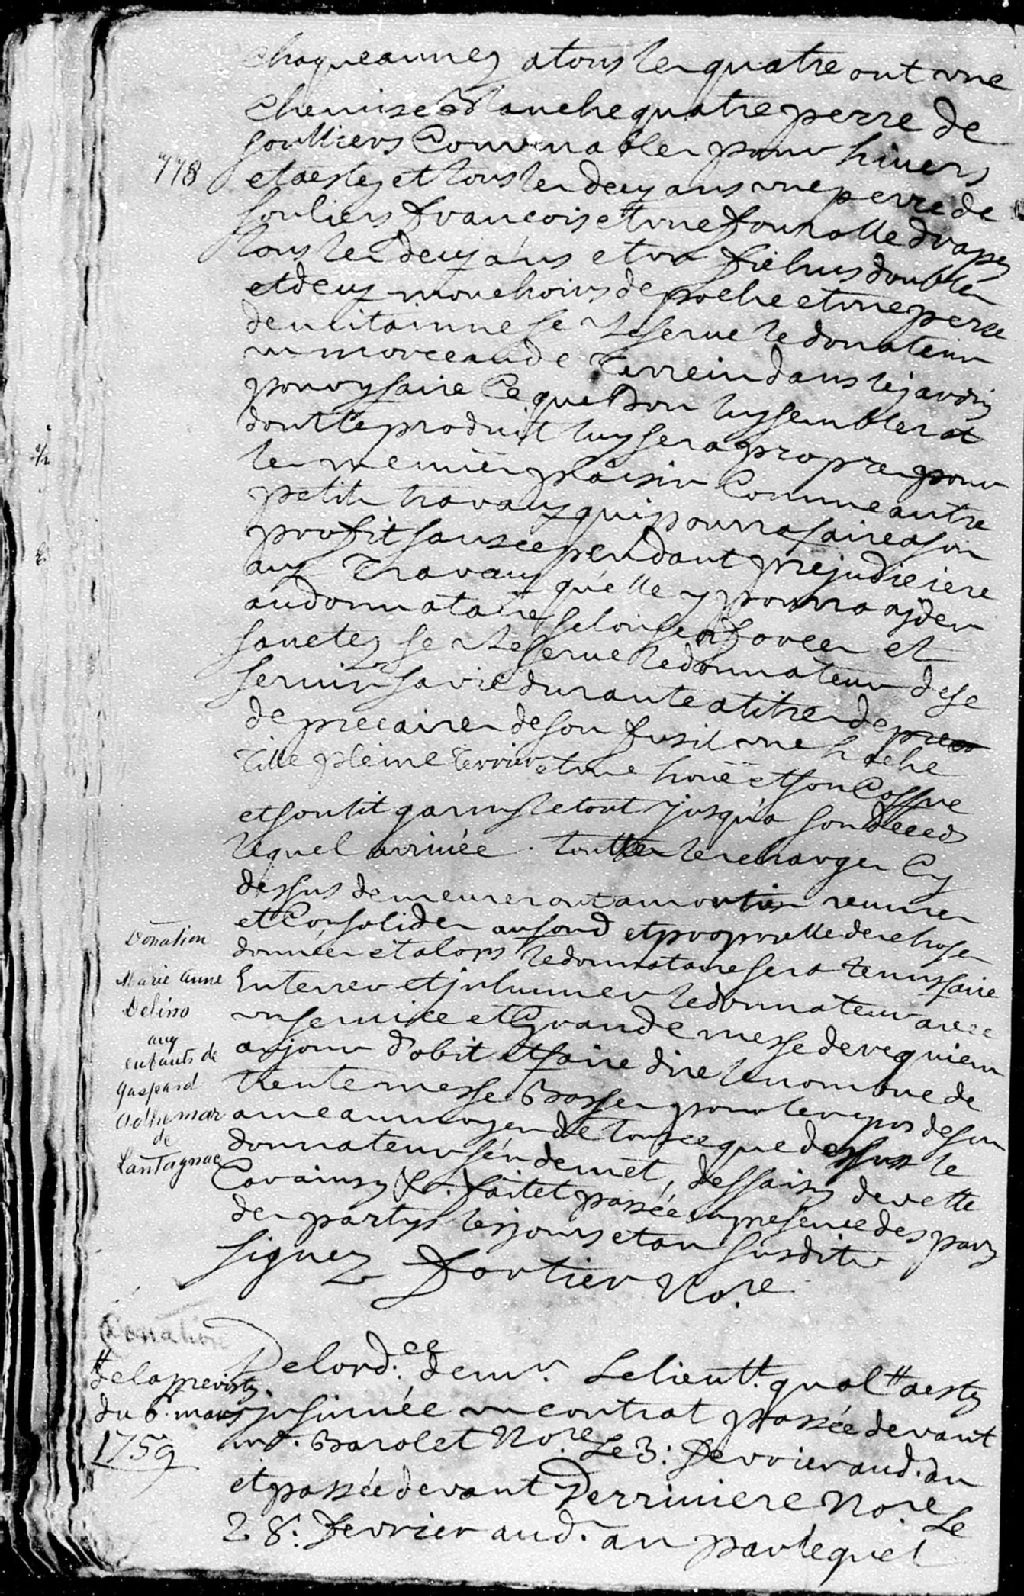 chaqueannez atous les quatre ont une
chemise Blanche quatre perre de
soulliers Convenables pour hivers
778
et aestez et tous les deux ans une perre de
souliers francois et une fourolle drapez
tous les deux ans et un fichus doublés
et deux mouchoirs de poche et une perre
de mitainne se reserve le donateur
un morceau de Terrein dans le jardin
pour y faire Ce que Bon luy semblera
dont le produit luy sera propre pour
les menües plaisir Comme autre
petits travaux qui pourra faire a son
profit sans cependant prejudicière
aux Travaux qu'elle y pourra ajder
au donnataire selon ses forces et
santez se Reserve le donnateur de se
servir sa vie durante a titre de
de precaire de son fusil une hache
Tille pleine Terrier et une houë et son Coffre
et son lit garny le tout jusqu'a son deced
lequel arrivée touttes les charges Cy
dessus demeureront amorties reunies
et Consolider au fond et proprietté des choses
donnier et alors le donnataire sera tenus faire
Enterrer et jnhumer le donnateur avec
un service et Grande messe de requiem
au jour d'obit et faire dire le nombre de
trente messe Basses pour le repos de son
ame au moyen de tout ce que dessus le
donnateur s'en demet, dessaisy de cette
Car ainsy &c. fait et passée en presence des par
des partys les jours et an susdits
signez Fortier No.re
Donation
Marie Anne
Delino
aux
enfants de
Gaspard
Adhemar
de
Lantagnac
Donation
de la prevosté
du 6. mars
1759
De l'ord.ce de mr. Le lieutt. qual tt aestez
jnsinuée un contrat passée devant
mr. Barolet No.re Le 3: fevrier aud. an
et passée devant Perriniere No.re Le
28. fevrier aud. an par lequel